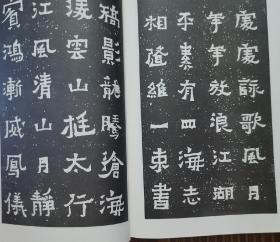 處處詠歌風月
年年放浪江湖
平素有四海志
相隨維一束書
景龍騰滄海
陵雲山挺太行
江風清山月靜
賓鴻漸威鳳儀